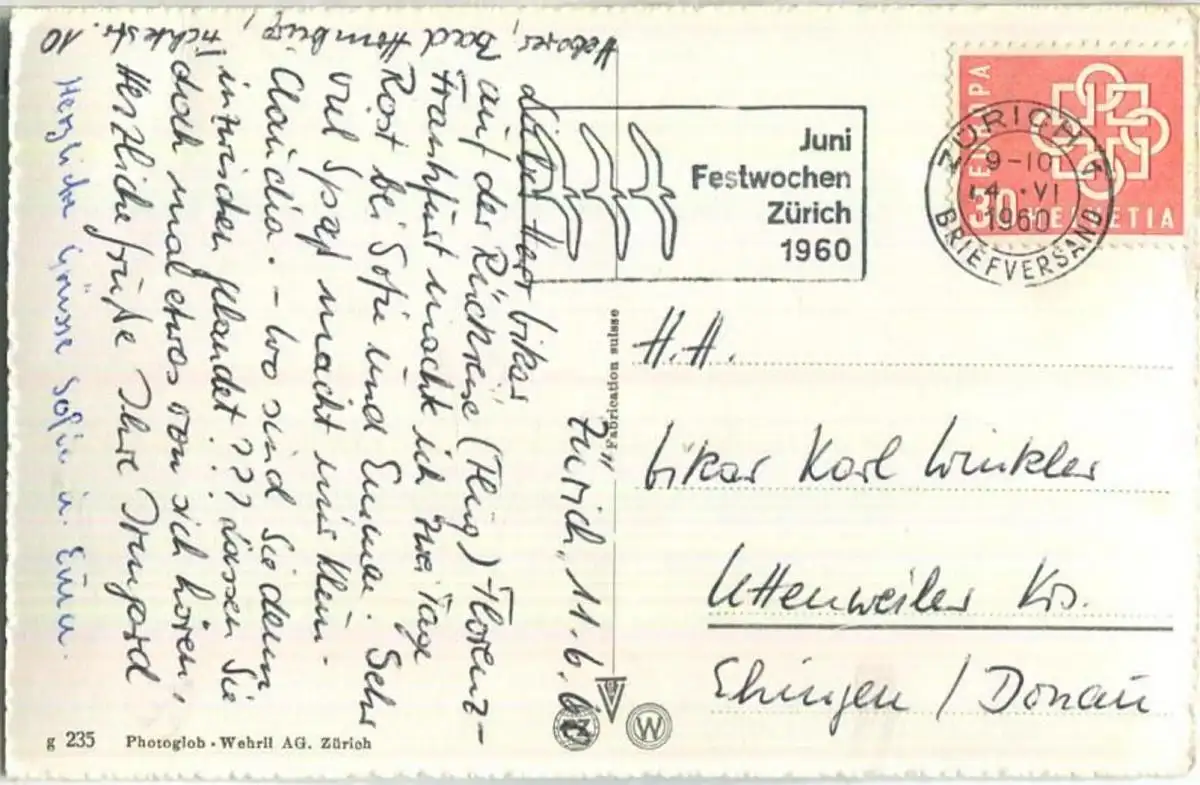 Zürich, 11.6.60
Lieber Herr Vikar
auf der Rückreise (Flug) Florenz-
Frankfurt mache ich zwei Tage
Rast bei Sofie und Emma. Sehr
viel Spaß macht mir klein
Claudia. - Wo sind Sie denn
inzwischen gelandet??? Lassen Sie
doch mal etwas von sich hören,
Herzliche Grüße Ihre Irmgard
Bad Homburg,
Fichtestr. 10
Herzliche Grüsse Sofie u. Emma.
Juni
Festwochen
Zürich
1960
EUROPA
30 HELVETIA
ZÜRICH 1
9-10
14.VI
1960
BRIEFVERSAND
H.H.
Vikar Karl Winkler
Uttenweiler Krs.
Ehingen / Donau
Fabrication suisse
W
g 235 Photoglob-Wehrli AG. Zürich